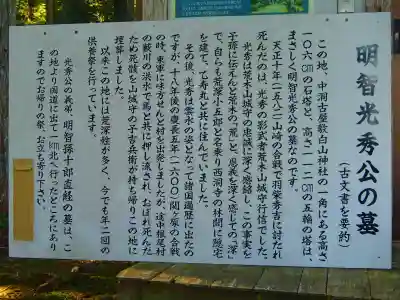 明智光秀公の墓
（古文書を要約）
この地、中洞古屋敷白山神社の一角にある高さ
一〇六㎝の石塔と、高さ二十二㎝の五輪の塔は、
まさしく明智光秀公の墓なのです。
天正十年（一五八二）山崎の合戦で羽柴秀吉に討たれ
死んだのは、光秀の影武者荒木山城守行信でした。
光秀は荒木山城守の忠誠に深く感銘し、この事実を
子孫に伝えんと荒木の「荒」と、恩義を深く感じての「深」
で、自らも荒深小五郎と名乗り西洞寺の林間に隠宅
を建て、乙寿丸と共に住んでいました。
その後、光秀は雲水の姿となって諸国遍歴に出たの
ですが、十八年後の慶長五年（一六〇〇）関ヶ原の合戦
の時、東軍に味方せんと村を出発しましたが、途中根尾村
の薮川の洪水で馬と共に押し流され、おぼれ死んだ
ため死骸を山城守の子吉兵衛が持ち帰りこの地に
埋葬しました。
以来この地には荒深姓が多く、今でも年二回の
供養祭を行っています。
光秀公の義弟「明智孫十郎直経」の墓は、こ
の地より国道に出て一km北へ行ったところにあり
ますのでお帰りの祭、お立ち寄り下さい。